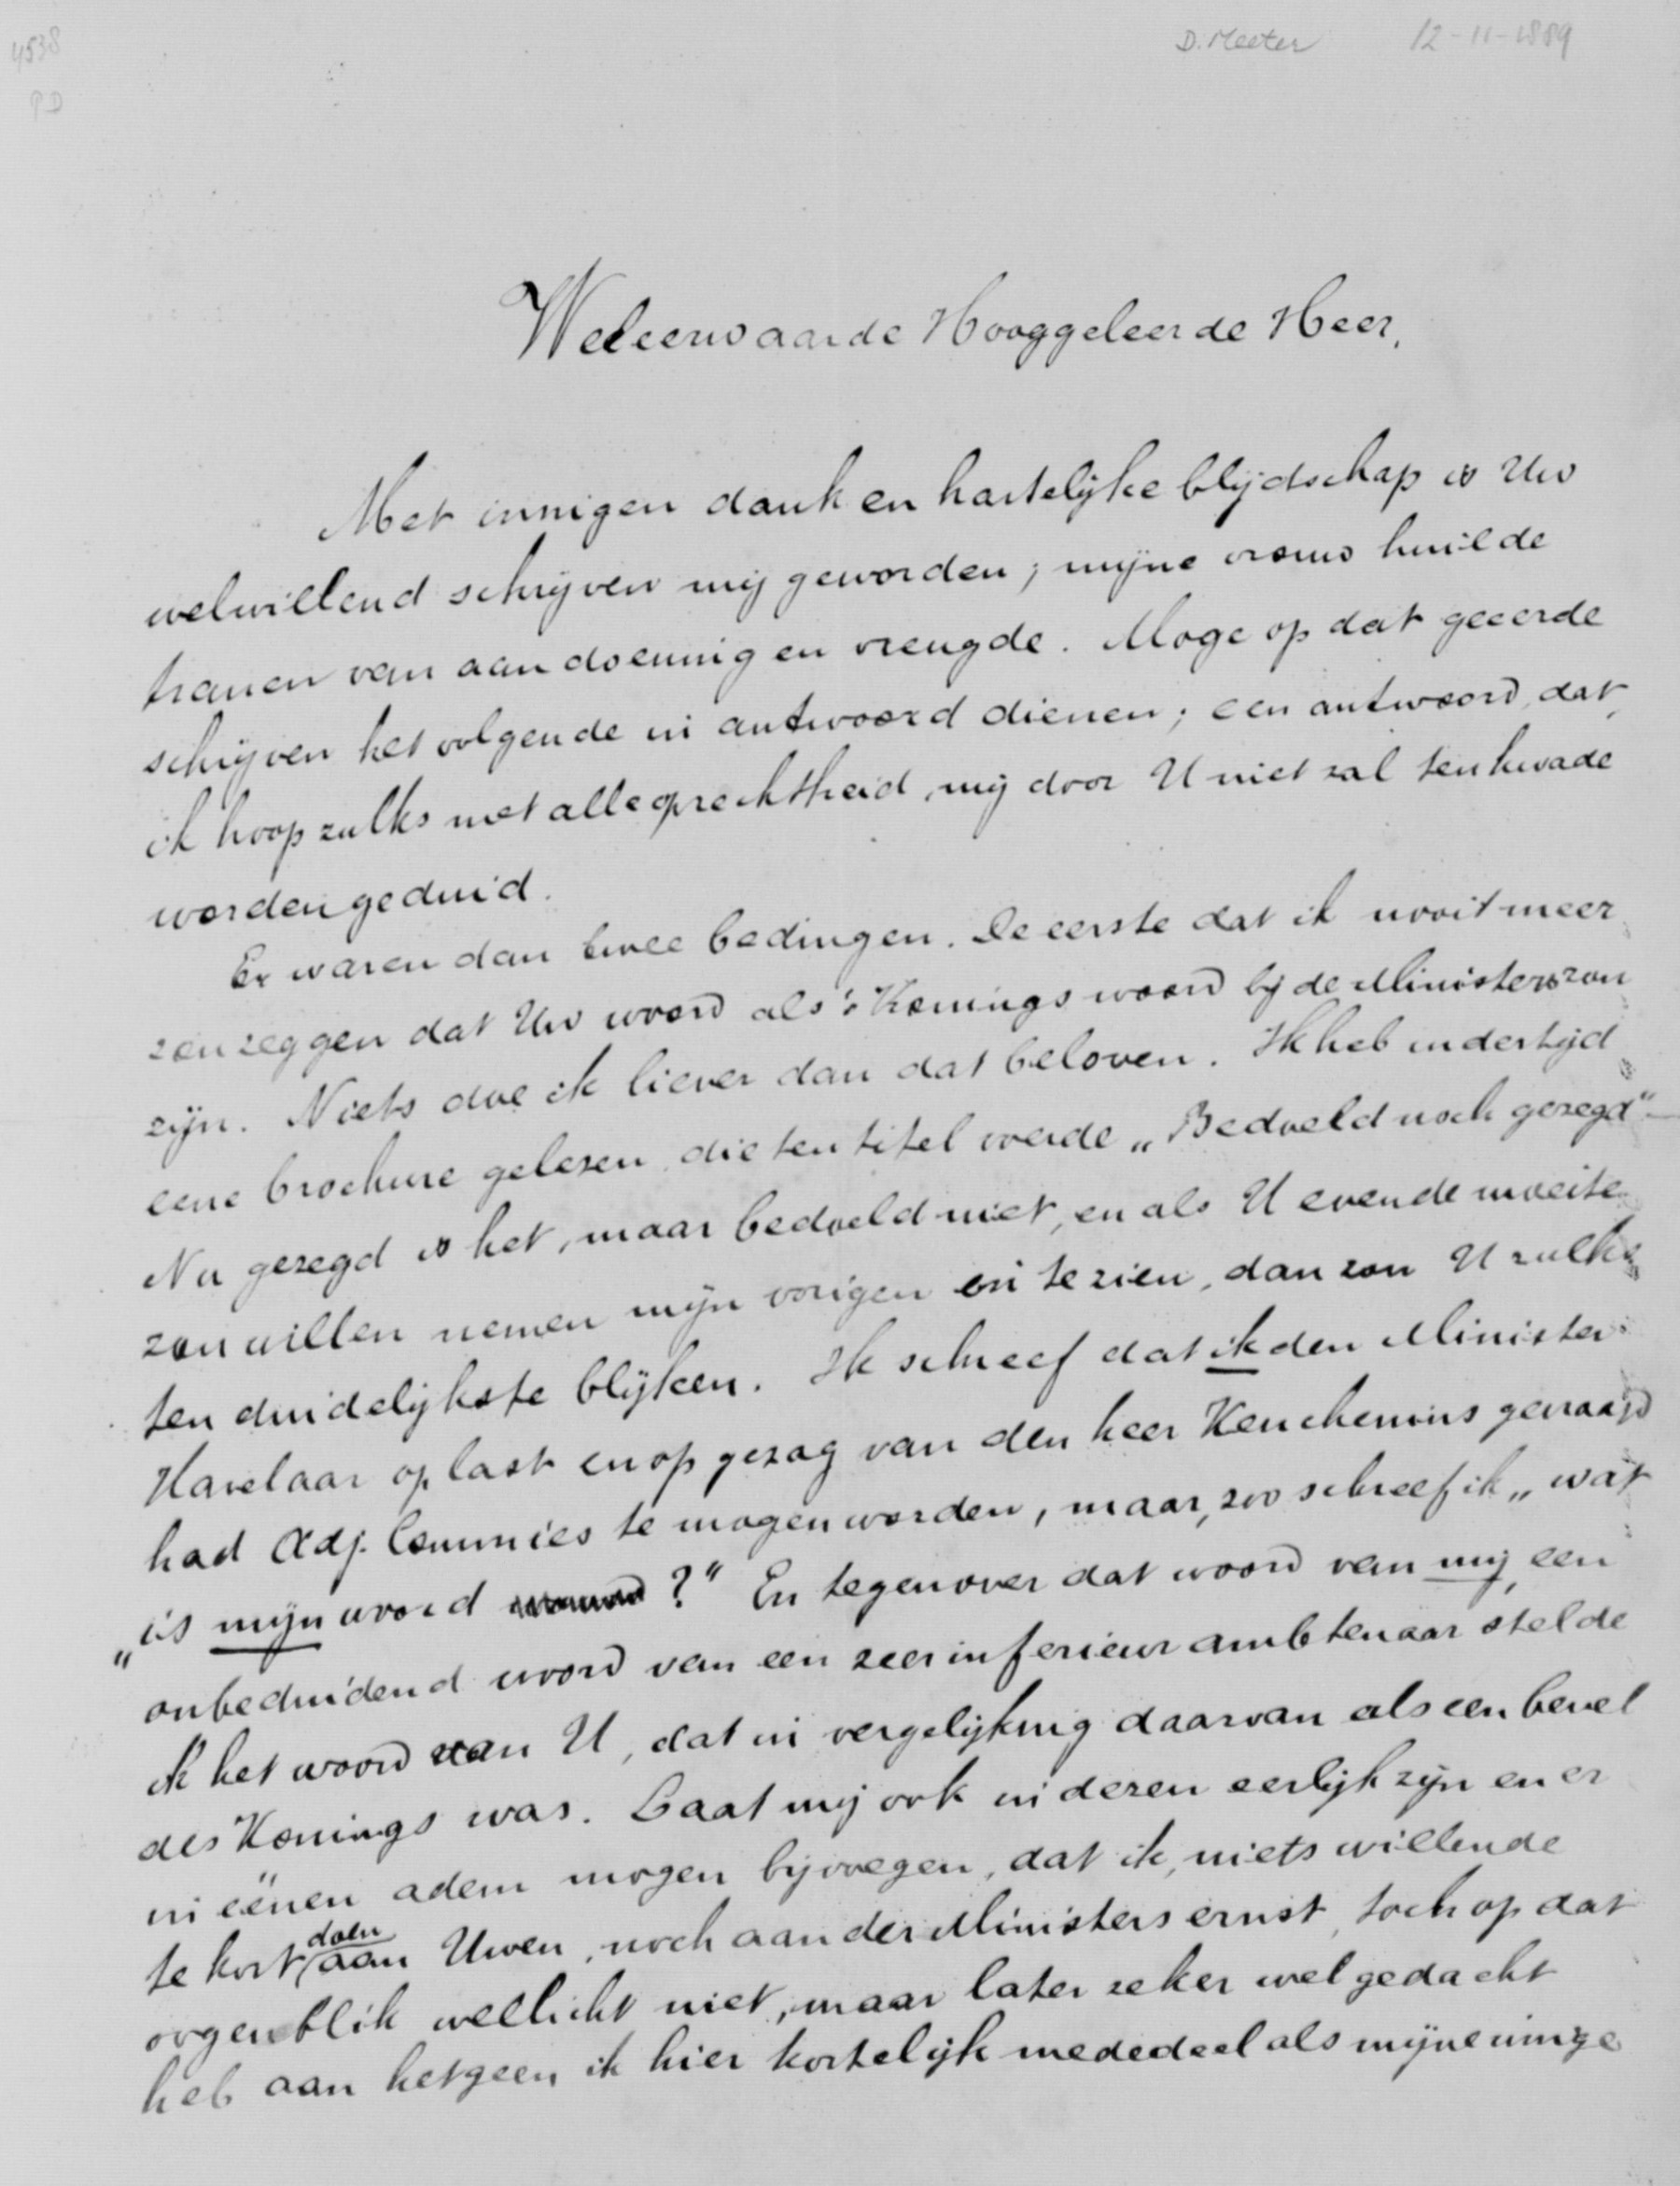 4538
PD
D. Meeter 12-11-1889
Weleerwaarde Hooggeleerde Heer,
Met innigen dank en hartelijke blijdschap is Uw
welwillend schrijven mij geworden; mijne vrouw huilde
tranen van aandoening en vreugde. Moge op dat geeerde
schrijven het volgende in antwoord dienen; een antwoord, dat,
ik hoop zulks met alle oprechtheid, mij door U niet zal ten kwade
worden geduid.
Er waren dan twee bedingen. De eerste dat ik nooit meer
zou zeggen dat Uw woord als 's Konings woord bij de Ministers zou
zijn. Niets doe ik liever dan dat beloven. Ik heb indertijd
eene brochure gelezen, die ten titel voerde „Bedoeld noch gezegd"–
Nu gezegd is het, maar bedoeld niet, en als U even de moeite
zou willen nemen mijn vorigen in te zien, dan zou U zulks
ten duidelijkste blijken. Ik schreef dat ik den Minister
Havelaar op last en op gezag van den heer Keuchenius gevraagd
had Adj. Commies te mogen worden, maar, zoo schreef ik „wat
„is mijn woord ?" En tegenover dat woord van mij, een
onbeduidend woord van een zeer inferieur ambtenaar stelde
ik het woord van U, dat in vergelijking daarvan als een bevel
des Konings was. Laat mij ook in dezen eerlijk zijn en er
in eenen adem mogen bijvoegen, dat ik, niets willende
te kort doen aan Uwen, noch aan der Ministers ernst, toch op dat
oogenblik wellicht niet, maar later zeker wel gedacht
heb aan hetgeen ik hier kortelijk mededeel als mijne innige